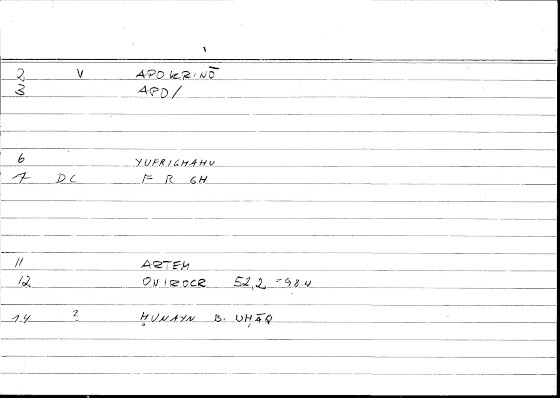 2 V APOKRINŌ
3 APO/
6 YUFRIGHAHU
7 DC F R GH
11 ARTEM
12 ONIROCR 52,2 = 98.4
14 ? ḤUNAYN B. ISḤĀQ